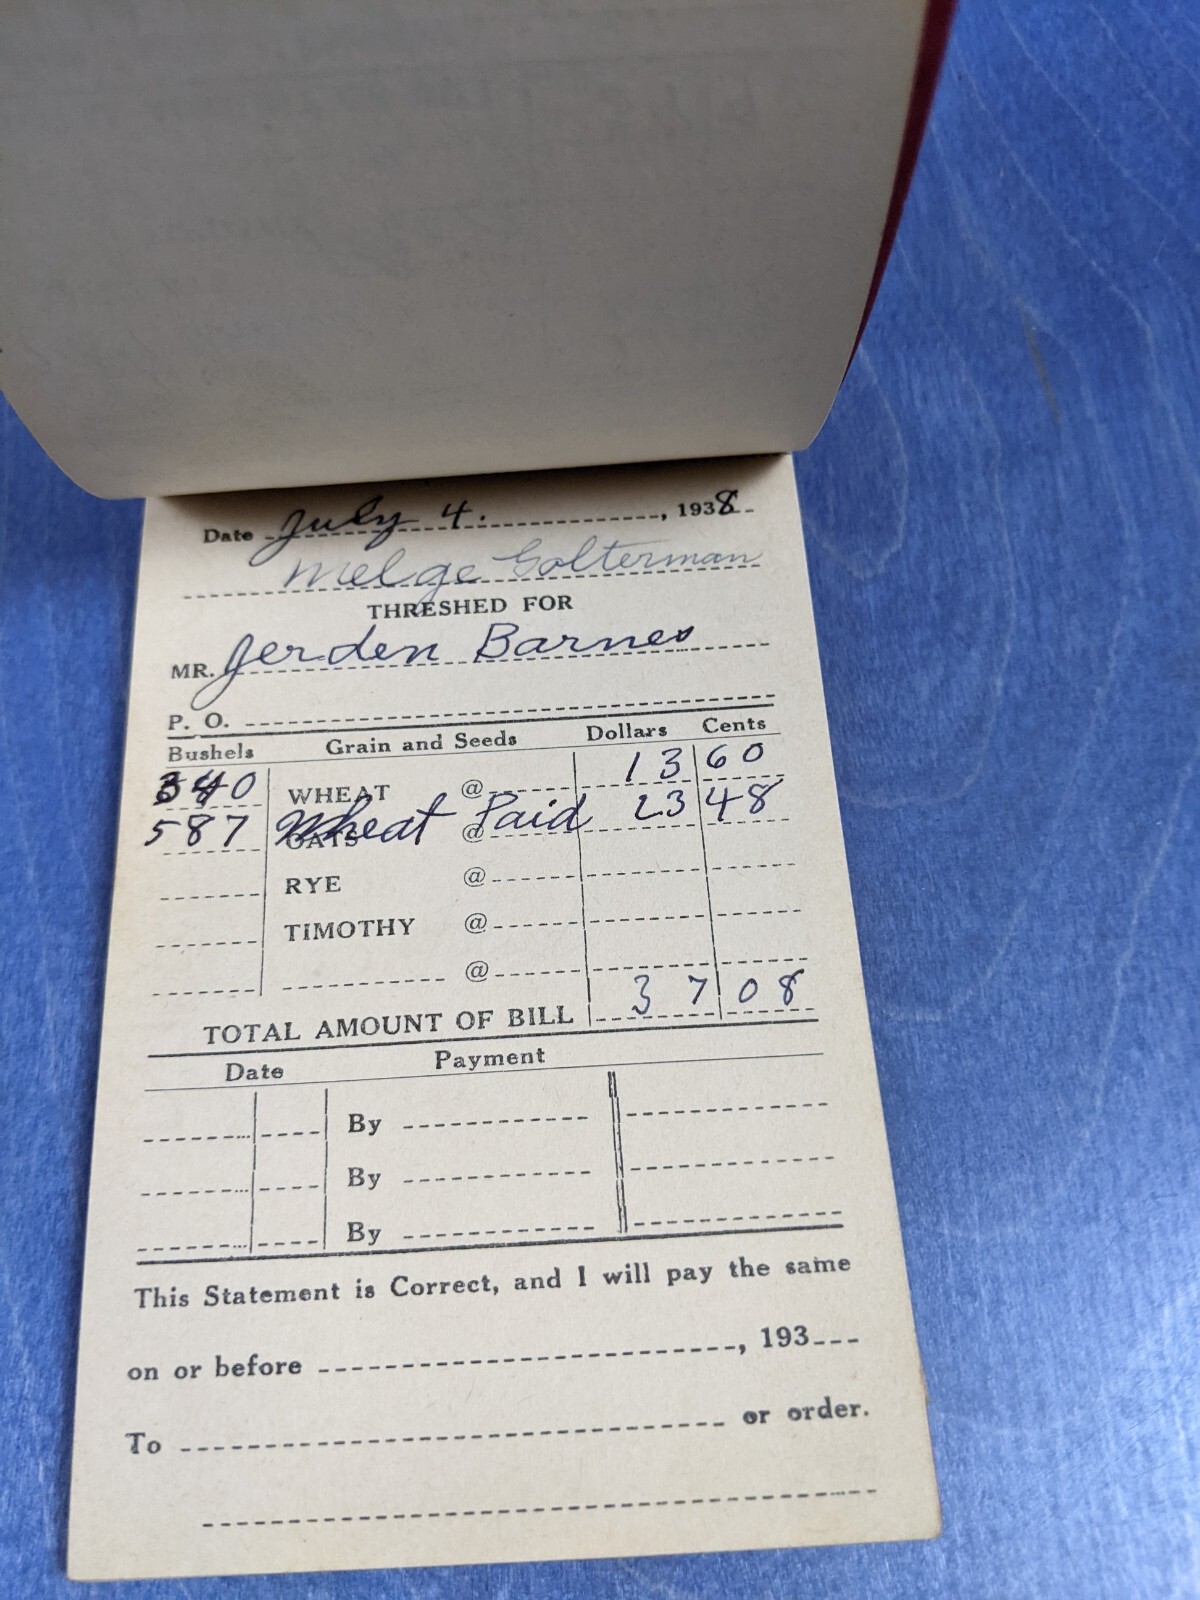 Date July 4. , 1938
Melge Golterman
THRESHED FOR
MR. Jerden Barnes
P. O.
Bushels Grain and Seeds Dollars Cents
340 WHEAT @ 13 60
587 OATS Wheat @ Paid 23 48
RYE @
TIMOTHY @
@
TOTAL AMOUNT OF BILL 37 08
Date Payment
By
By
By
This Statement is Correct, and I will pay the same
on or before , 193
To or order.